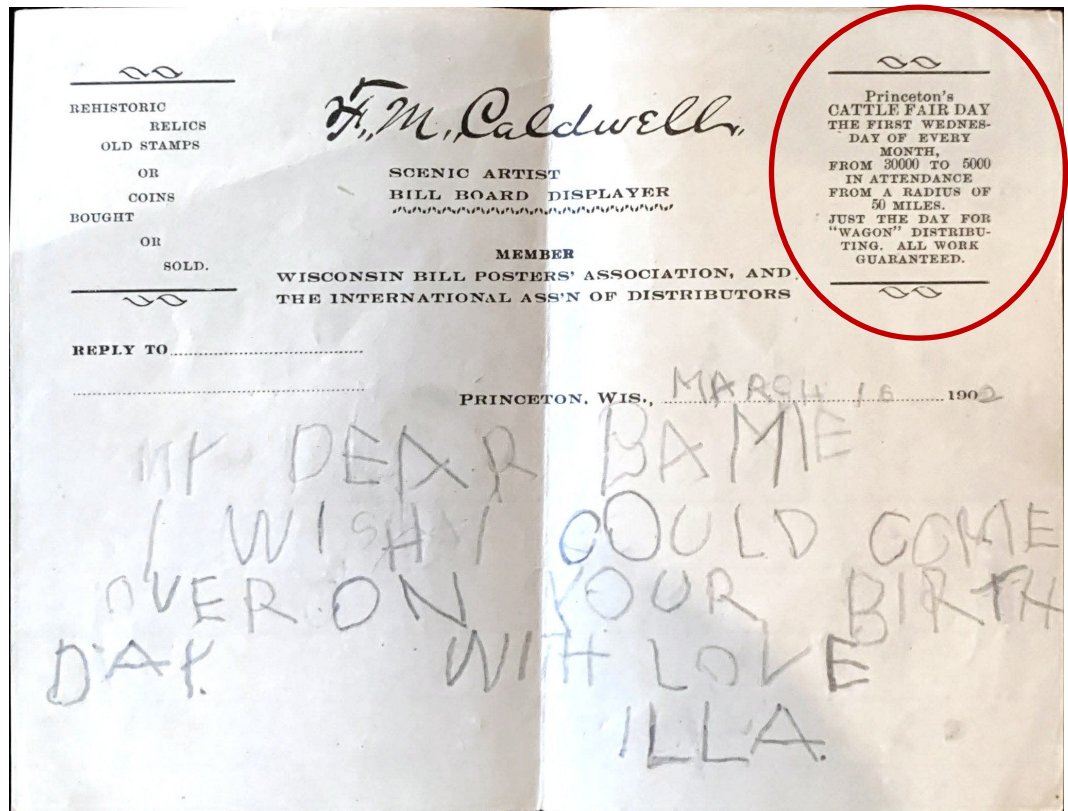 REHISTORIC
RELICS
OLD STAMPS
OR
COINS
BOUGHT
OR
SOLD.
F. M. Caldwell,
SCENIC ARTIST
BILL BOARD DISPLAYER
MEMBER
WISCONSIN BILL POSTERS' ASSOCIATION, AND
THE INTERNATIONAL ASS'N OF DISTRIBUTORS
Princeton's
CATTLE FAIR DAY
THE FIRST WEDNES-
DAY OF EVERY
MONTH,
FROM 30000 TO 5000
IN ATTENDANCE
FROM A RADIUS OF
50 MILES.
JUST THE DAY FOR
"WAGON" DISTRIBU-
TING. ALL WORK
GUARANTEED.
REPLY TO
PRINCETON, WIS., MARCH 16 1902
MY DEAR BAMIE
I WISH I COULD COME
OVER ON YOUR BIRTH
DAY. WITH LOVE
ILLA.